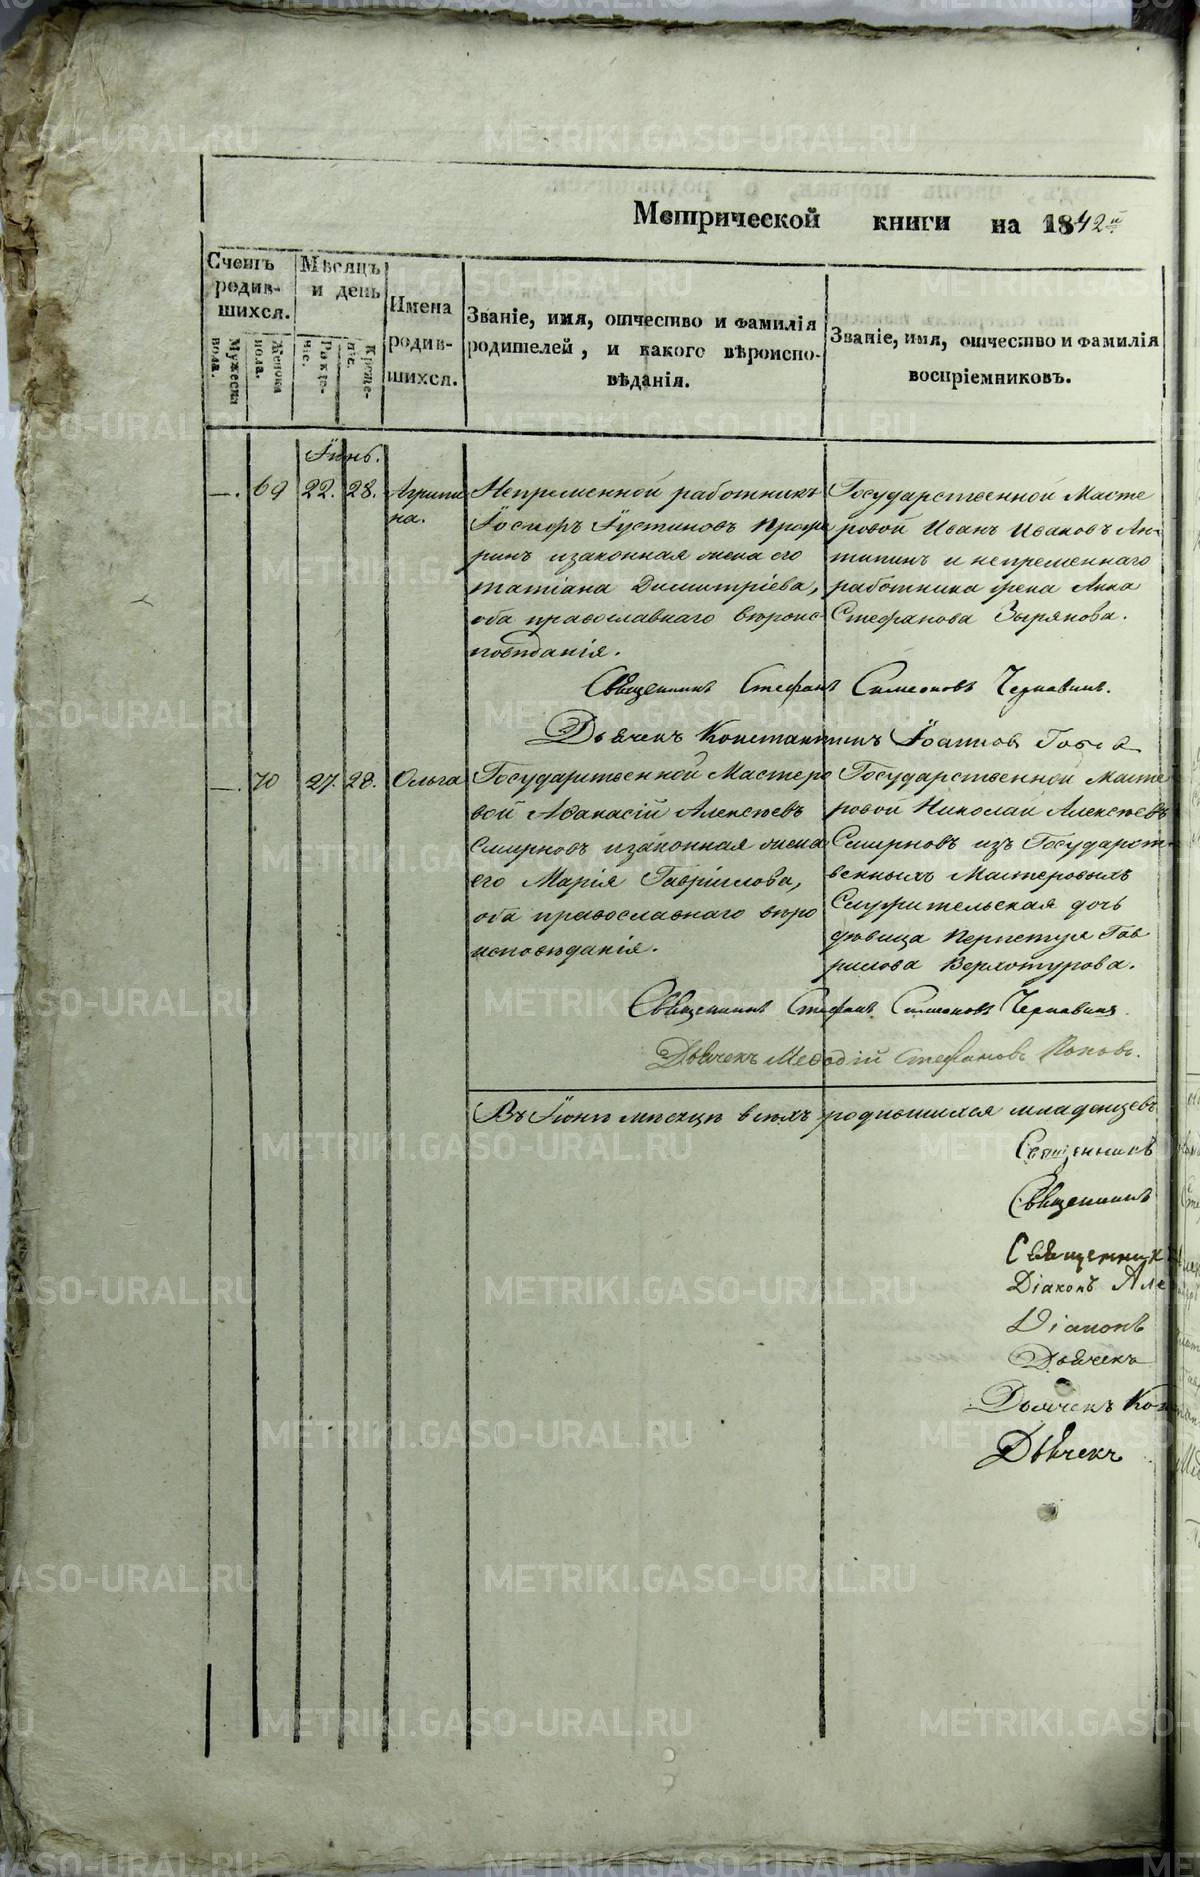 Метрической книги на 1842й
Счетъ родив-шихся.
Мужеска пола.
Женска пола.
Мѣсяцъ и день
Рожде-нiе.
Креще-нiе.
Имена родив-шихся.
Званiе, имя, отчество и фамилiя
родителей, и какого вѣроиспо-
вѣданiя.
Званiе, имя, отчество и фамилiя
воспрiемниковъ.
Iюнь.
—. 69 22. 28. Агрипи
на.
Непременной работникъ
Iосифъ Iустиновъ
и законная жена его
Татiана Димитрiева,
оба православнаго вѣроис-
повѣданiя.
Государственной Масте
ровой Иванъ Ивановъ Ан-
типинъ и непременнаго
работника жена Анна
Стефанова Зырянова.
Священникъ Стефанъ Симеоновъ Чернавинъ.
Дьячекъ Константинъ Iоанновъ
—. 70 27. 28. Ольга
Государственной Мастеро
вой Аѳанасiй Алексѣевъ
Смирновъ и законная жена
его Марiя Гаврiилова,
оба православнаго вѣро
исповѣданiя.
Государственной Масте
ровой Николай Алексѣевъ
Смирновъ изъ Государст-
венныхъ Мастеровыхъ
Служительская дочь
дѣвица Перпетуя Гав
рилова Верхотурова.
Священникъ Стефанъ Симеоновъ Чернавинъ
Дьячекъ Меѳодiй Стефановъ Поповъ.
Въ Iюнѣ мѣсяцѣ всѣхъ родившихся младенцевъ
Священникъ
Священникъ
Священникъ
Дiаконъ Але
Дiаконъ
Дьячекъ
Дьячекъ Кон
Дьячекъ
METRIKI.GASO-URAL.RU